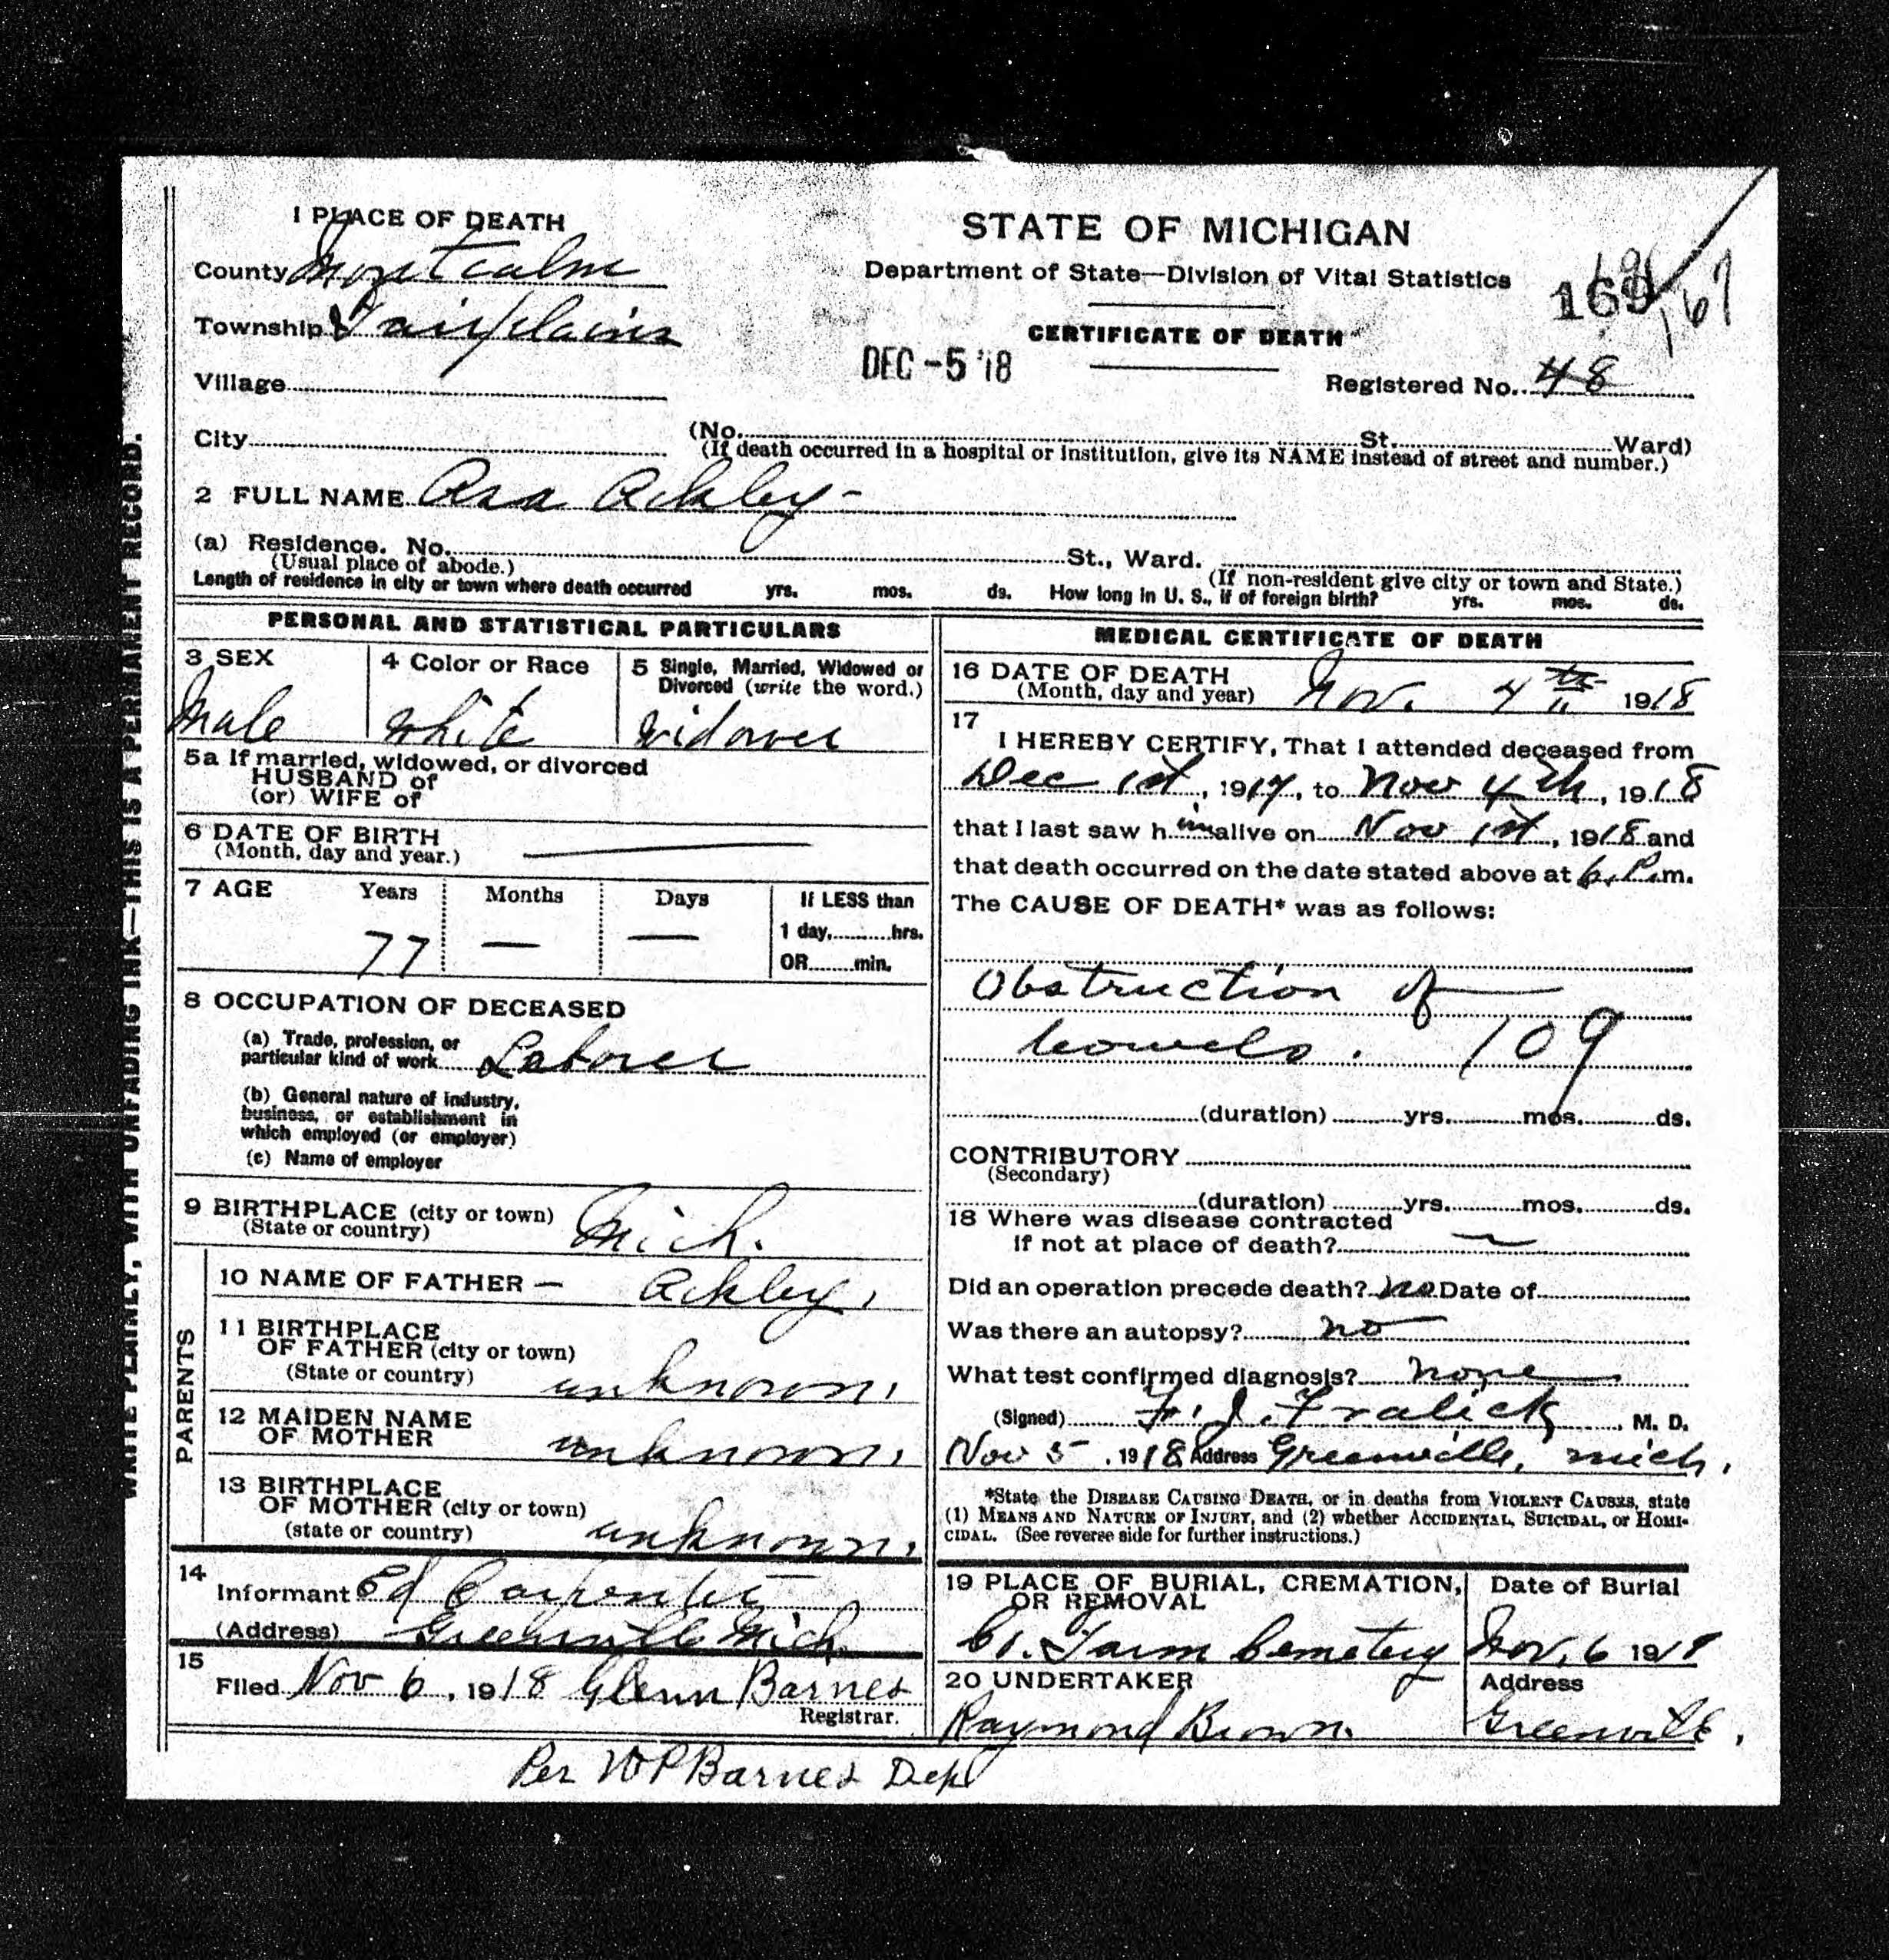 1 PLACE OF DEATH
County Montcalm
Township Fairplains
Village
City
STATE OF MICHIGAN
Department of State—Division of Vital Statistics
CERTIFICATE OF DEATH
DEC -5 '18
169
167
Registered No. 48
(No. St. Ward)
(If death occurred in a hospital or institution, give its NAME instead of street and number.)
2 FULL NAME Asa Ackley -
(a) Residence. No. St., Ward.
(Usual place of abode.) (If non-resident give city or town and State.)
Length of residence in city or town where death occurred yrs. mos. ds. How long in U. S., if of foreign birth? yrs. mos. ds.
PERSONAL AND STATISTICAL PARTICULARS
3 SEX
Male
4 Color or Race
White
5 Single, Married, Widowed or
Divorced (write the word.)
Widower
5a If married, widowed, or divorced
HUSBAND of
(or) WIFE of
6 DATE OF BIRTH
(Month, day and year.) —
7 AGE Years Months Days If LESS than
1 day, hrs.
77 — — OR min.
8 OCCUPATION OF DECEASED
(a) Trade, profession, or
particular kind of work Laborer
(b) General nature of industry,
business, or establishment in
which employed (or employer)
(c) Name of employer
9 BIRTHPLACE (city or town)
(State or country) Mich.
PARENTS
10 NAME OF FATHER — Ackley,
11 BIRTHPLACE
OF FATHER (city or town)
(State or country) unknown,
12 MAIDEN NAME
OF MOTHER unknown,
13 BIRTHPLACE
OF MOTHER (city or town)
(state or country) unknown,
14
Informant Ed Carpenter
(Address) Greenville Mich
15
Filed Nov 6, 1918 Glenn Barnes
Registrar.
Per W P Barnes Dep
MEDICAL CERTIFICATE OF DEATH
16 DATE OF DEATH
(Month, day and year) Nov. 4th 1918
17
I HEREBY CERTIFY, That I attended deceased from
Dec 1st, 1917, to Nov 4th, 1918
that I last saw him alive on Nov 1st, 1918 and
that death occurred on the date stated above at 6 P.m.
The CAUSE OF DEATH* was as follows:
Obstruction of
bowels. 109
(duration) yrs. mos. ds.
CONTRIBUTORY
(Secondary)
(duration) yrs. mos. ds.
18 Where was disease contracted
if not at place of death? —
Did an operation precede death? no Date of
Was there an autopsy? no
What test confirmed diagnosis? none
(Signed) F. J. Fralick, M. D.
Nov 5, 1918 Address Greenville, Mich.
*State the DISEASE CAUSING DEATH, or in deaths from VIOLENT CAUSES, state
(1) MEANS AND NATURE OF INJURY, and (2) whether ACCIDENTAL, SUICIDAL, or HOMI-
CIDAL. (See reverse side for further instructions.)
19 PLACE OF BURIAL, CREMATION,
OR REMOVAL
Co. Farm Cemetery
Date of Burial
Nov. 6 1918
20 UNDERTAKER
Raymond Brown.
Address
Greenville,
WRITE PLAINLY, WITH UNFADING INK—THIS IS A PERMANENT RECORD.